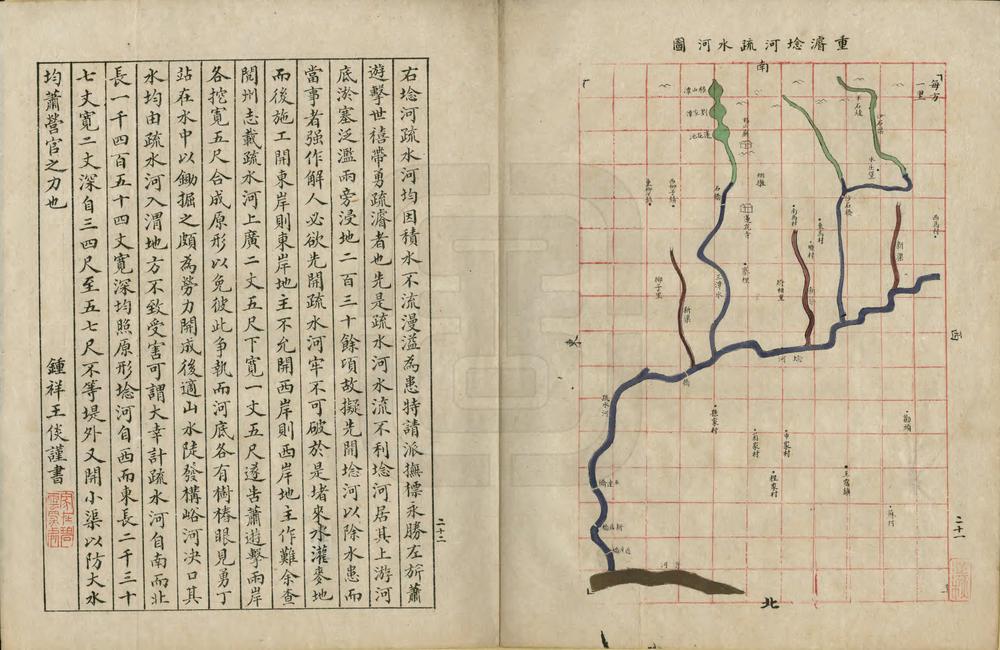 重濬埝河疏水河圖
南
每方
一里
西
東
北
石橋
蓮花寺
三漳水
新渠
新渠
埝河
橋
疏水河
王店鎮
程家村
蘇村
西馬村
南焉村
蓮花池
二十一
右埝河疏水河均因積水不流漫溢為患特請派撫標永勝左旂蕭
遊擊世禧帶勇疏濬者也先是疏水河水流不利埝河居其上游河
底淤塞泛濫兩旁浸地二百三十餘頃故擬先開埝河以除水患而
當事者强作解人必欲先開疏水河牢不可破於是堵來水灌麥地
而後施工開東岸則東岸地主不允開西岸則西岸地主作難余查
閱州志載疏水河上廣二丈五尺下寬一丈五尺遂告蕭遊擊兩岸
各挖寬五尺合成原形以免彼此争執而河底各有樹樁眼見勇丁
站在水中以鋤掘之頗為勞力開成後適山水陡發構峪河决口其
水均由疏水河入渭地方不致受害可謂大幸計疏水河自南而北
長一千四百五十四丈寬深均照原形埝河自西而東長二千三十
七丈寬二丈深自三四尺至五七尺不等堤外又開小渠以防大水
均蕭營官之力也
鍾祥王俟謹書
二十二